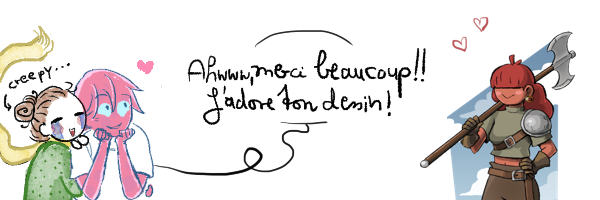 creepy...
Ahwww, merci beaucoup!!
J'adore ton dessin!